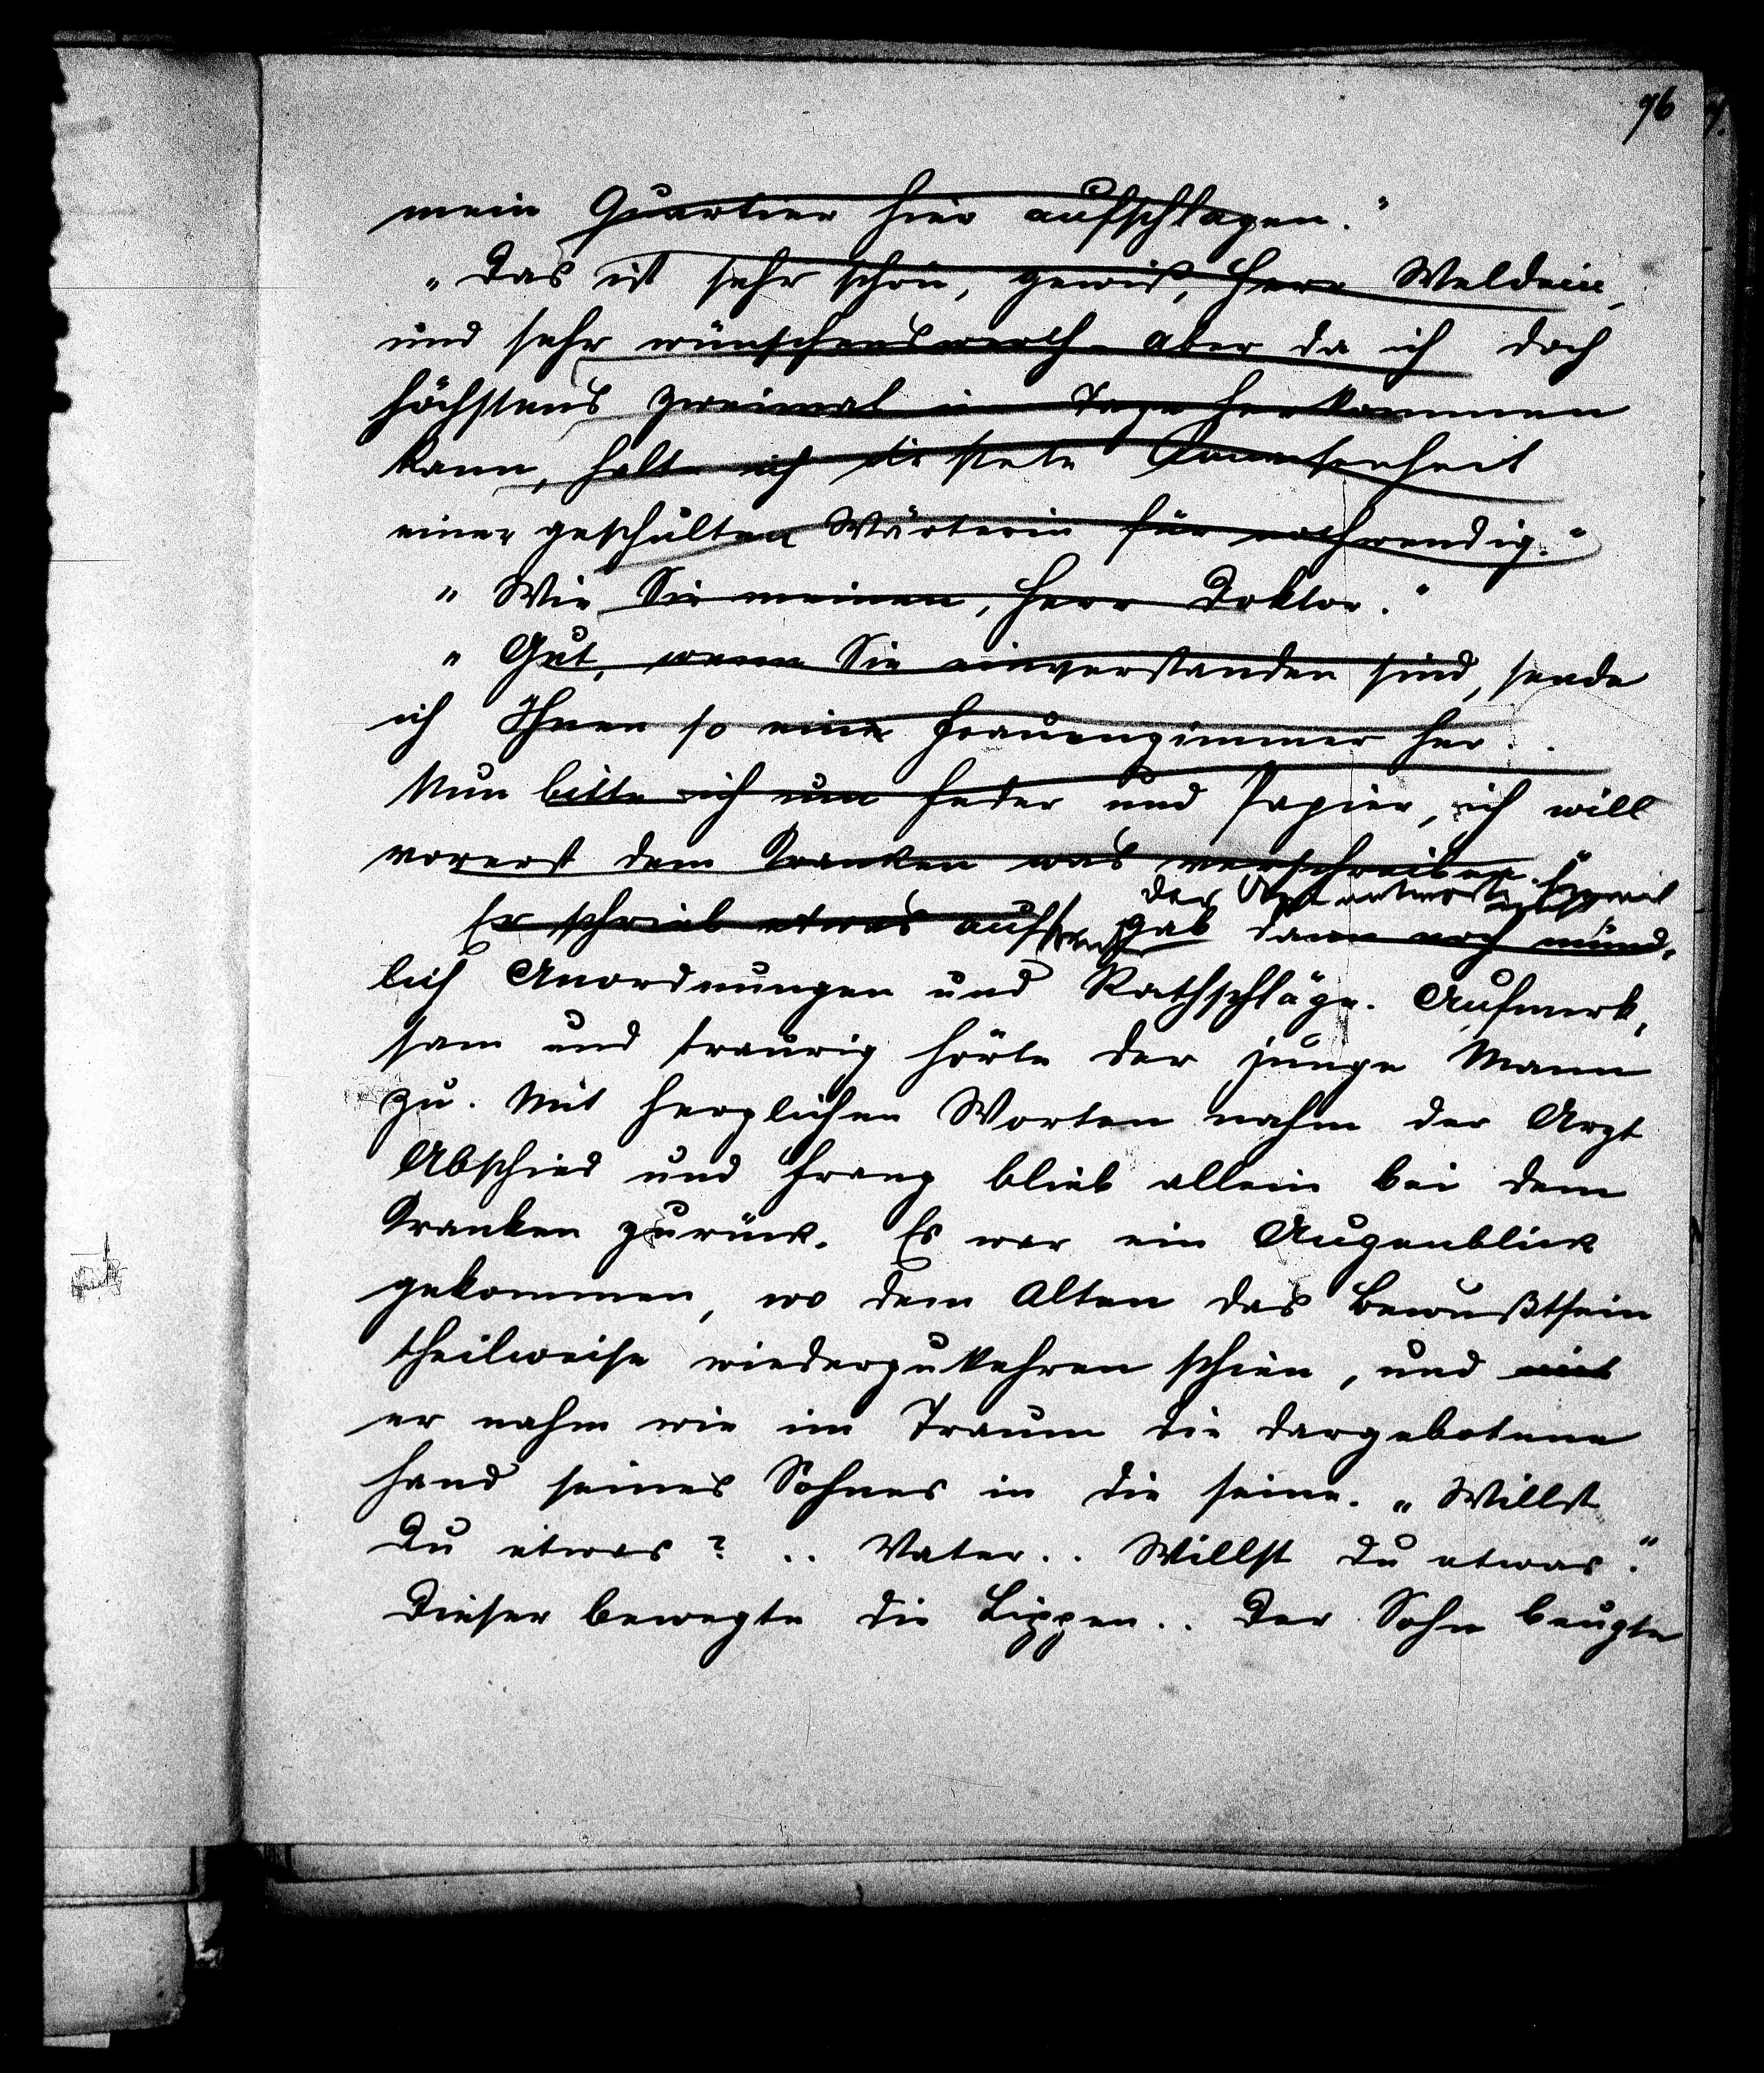 96
mein Quartier hier aufschlagen."
„Das ist sehr schön, gewiß, Herr Weldein,
und sehr wünschenswerth. Aber da ich doch
höchstens zweimal im Tage herkommen
kann, halte ich die stete Anwesenheit
einer geschulten Wärterin für nothwendig."
„Wie Sie meinen, Herr Doktor."
„Gut, wenn Sie einverstanden sind, sende
ich Ihnen so eine Frauenzimmer her..
Nun bitte ich um Feder und Papier, ich will
vorerst dem Kranken was verschreiben."
der Arzt
Er schrieb etwas auf gab dann noch münd-
lich Anordnungen und Rathschläge. Aufmerk-
sam und traurig hörte der junge Mann
zu. Mit herzlichen Worten nahm der Arzt
Abschied und Franz blieb allein bei dem
Kranken zurück. Es war ein Augenblick
gekommen, wo dem Alten das Bewußtsein
theilweise wiederzukehren schien, und mit
er nahm wie im Traum die dargebotene
Hand seines Sohnes in die seine. „Willst
Du etwas? .. Vater.. Willst du etwas."
Dieser bewegte die Lippen.. Der Sohn beugte